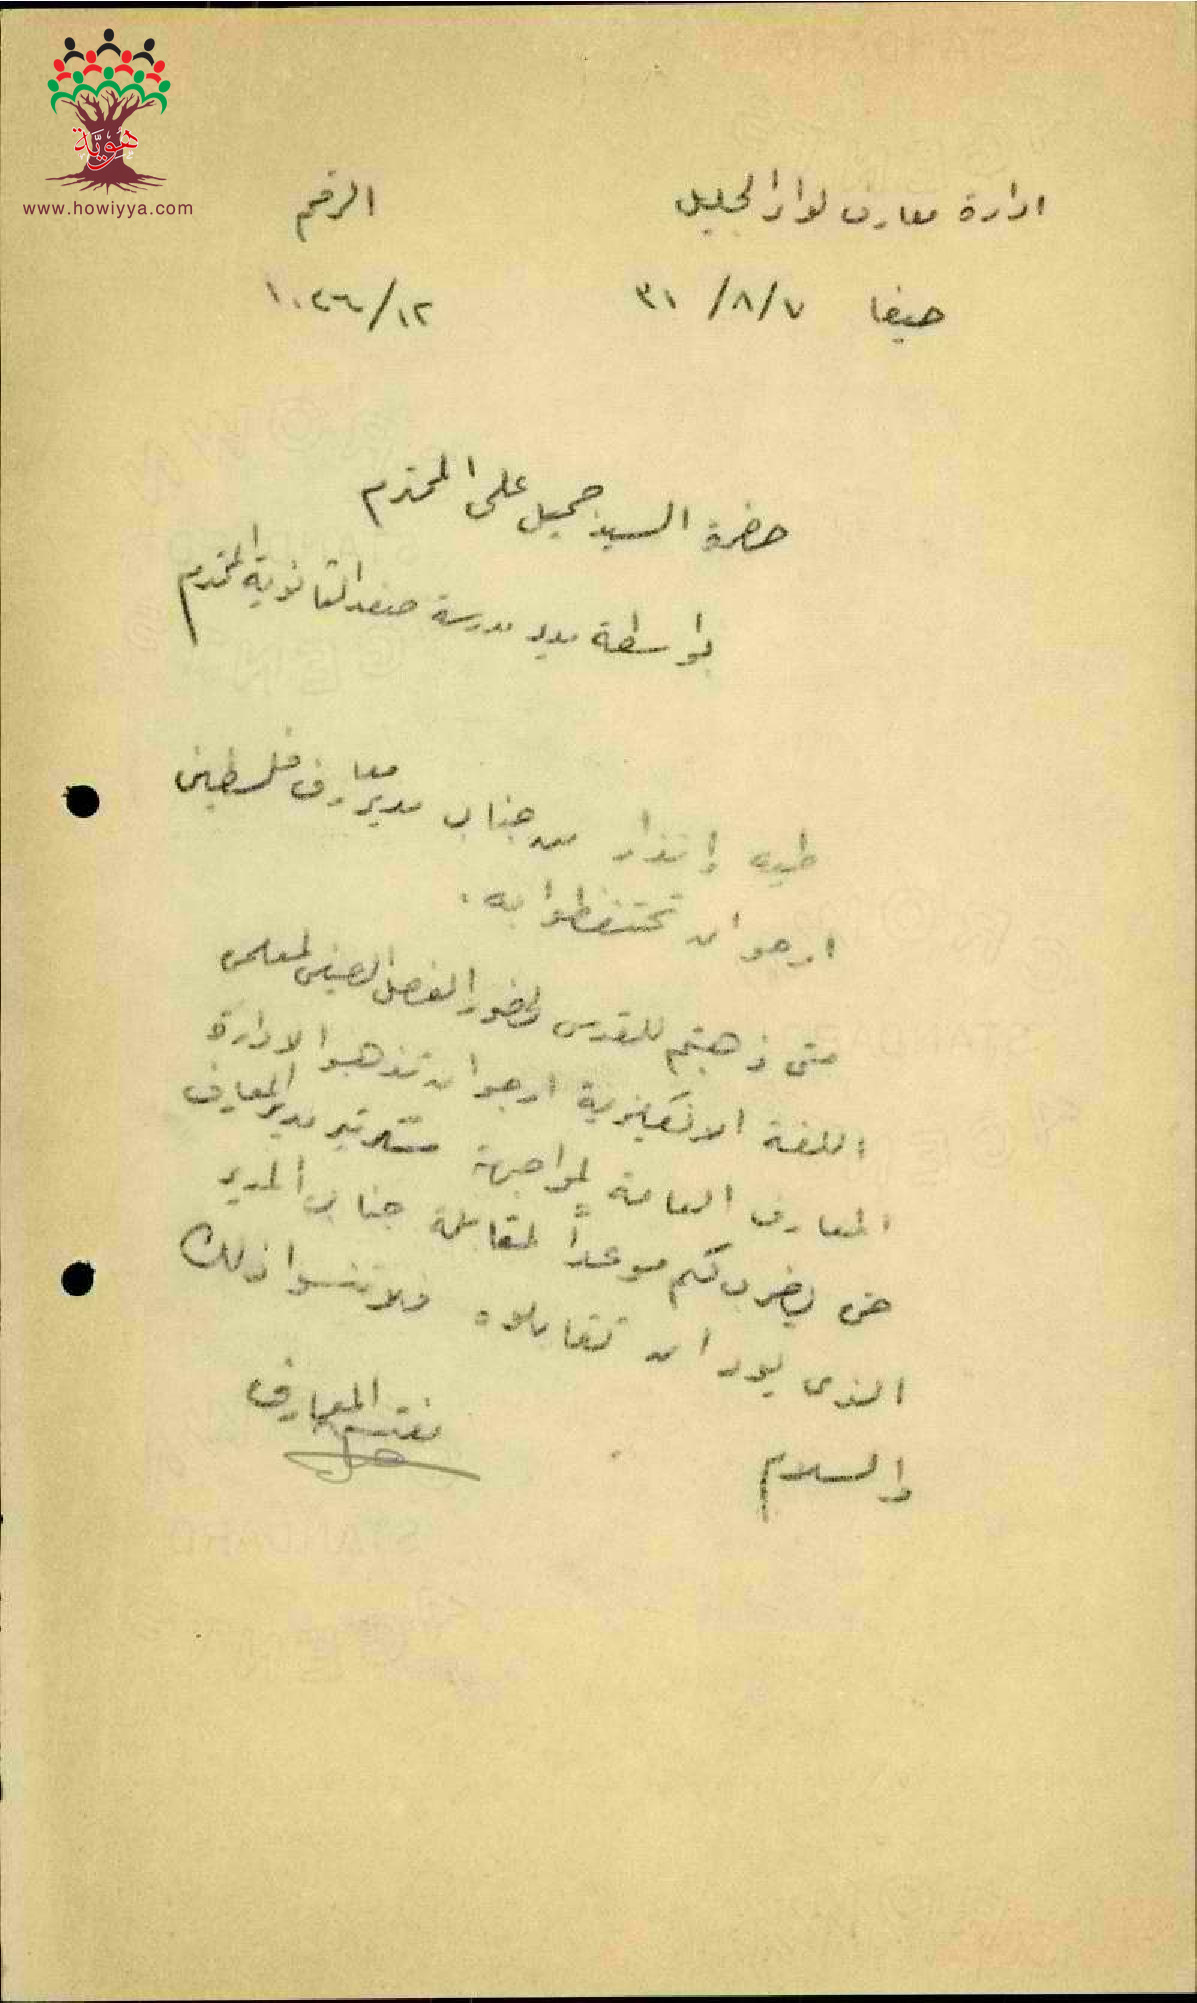 هوية
www.howiyya.com
ادارة معارف لواء الجليل
الرقم
حيفا ٧/٨/٣١
١٢/١٠٢٦
حضرة السيد جميل علي المحترم
بواسطة مدير مدرسة صفد الثانوية المحترم
طيه انذار من جناب مدير معارف فلسطين
ارجو ان تحتفظوا به.
متى ذهبتم للقدس لحضور الفصل الصيفي لمعلمي
اللغة الانكليزية ارجو ان تذهبوا لادارة
المعارف العامة لمواجهة سكرتير مدير المعارف
يضرب لكم موعداً لمقابلة جناب المدير
الذي يود ان تقابلوه فلا تنسوا ذلك
والسلام
مفتش المعارف